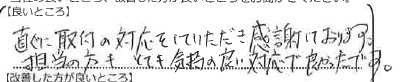 【良いところ】
直ぐに取付の対応をしていただき感謝しております。
担当の方もとても気持の良い対応で良かったです。
【改善した方が良いところ】